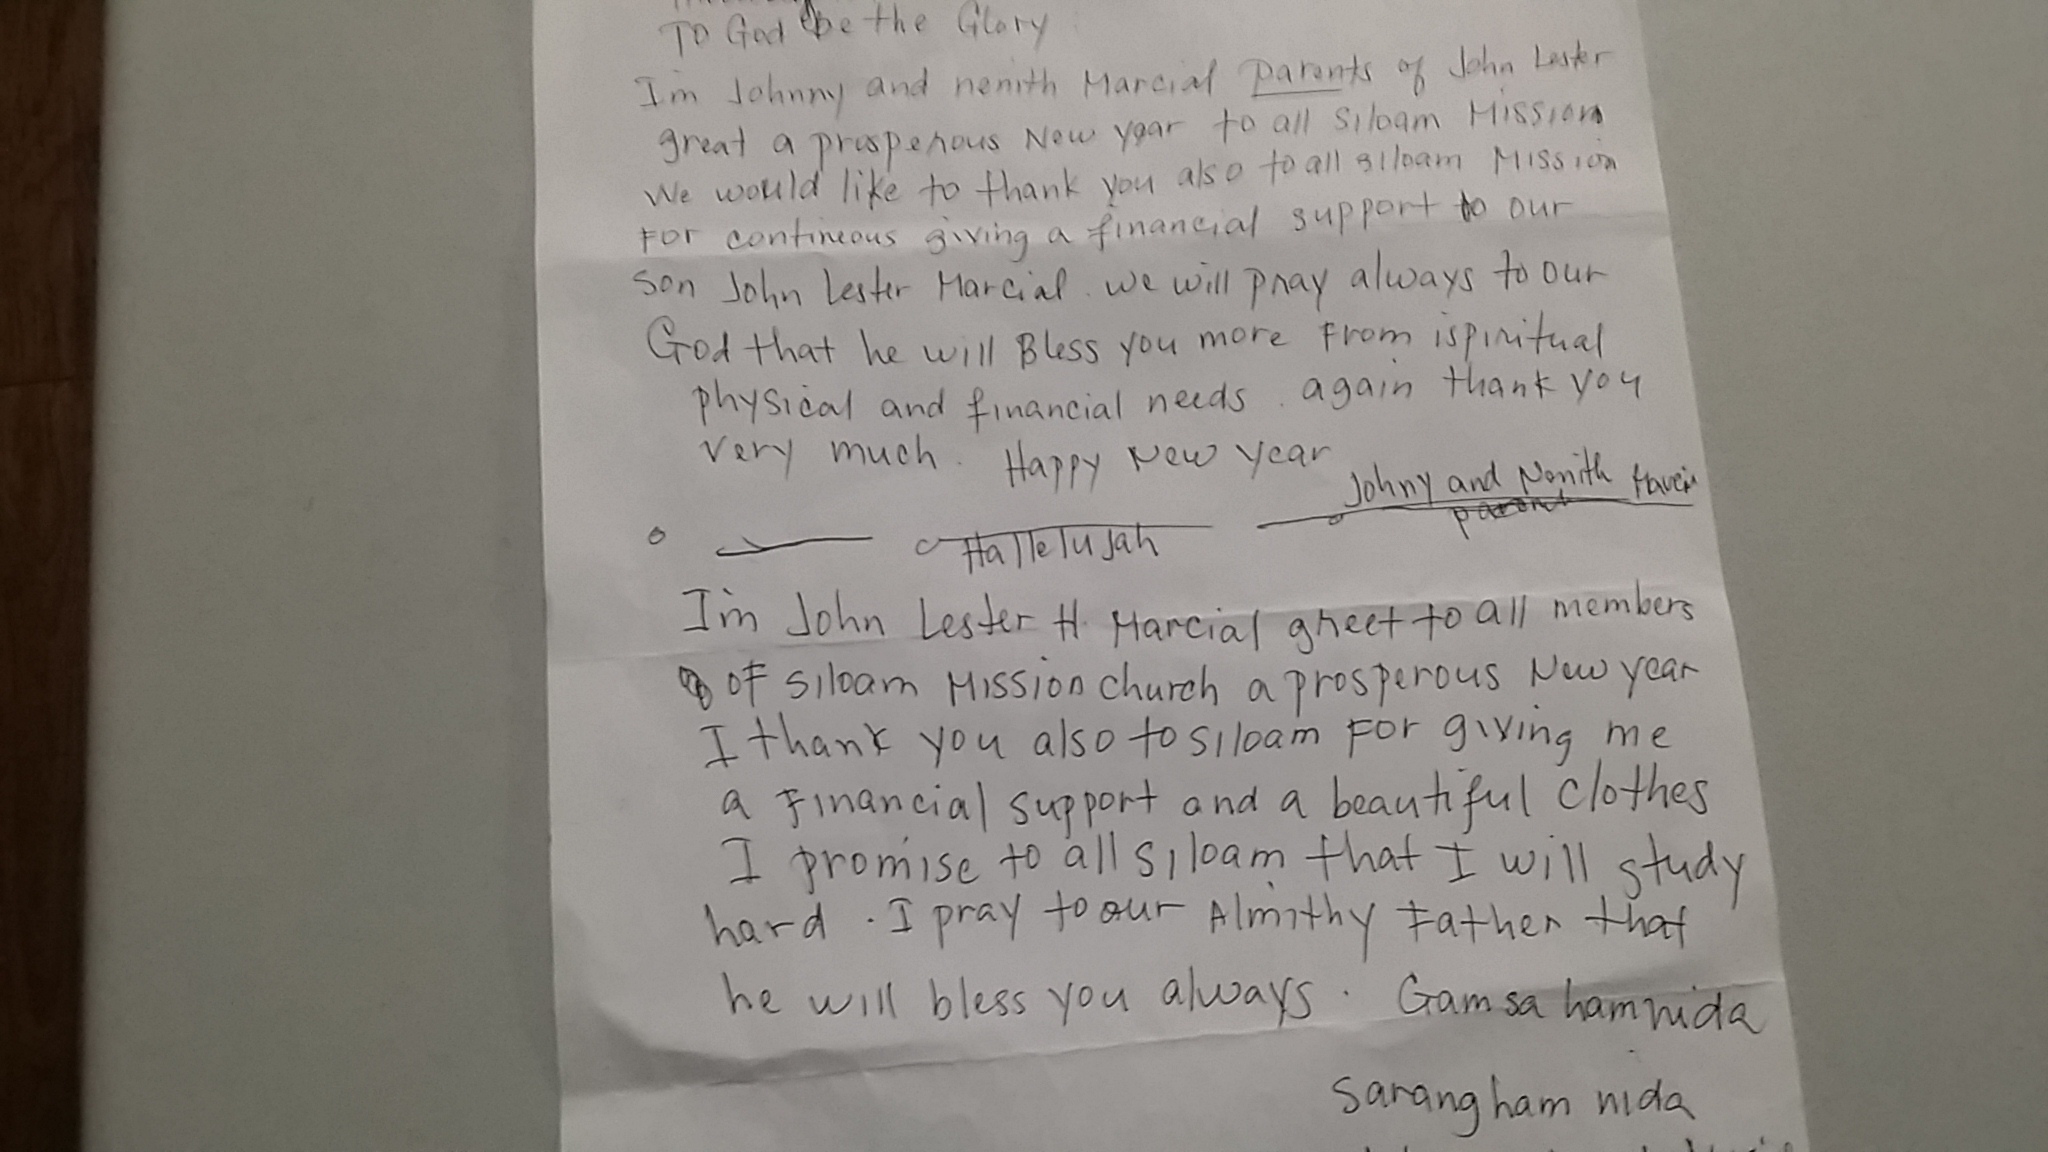 To God be the Glory
I'm Johnny and nenith Marcial parents of John Lester
great a prosperous New year to all Siloam Mission
We would like to thank you also to all siloam Mission
For contineous giving a financial support to our
son John Lester Marcial. we will pray always to our
God that he will Bless you more From ispiritual
physical and financial needs. again thank you
very much. Happy New year
Johny and Nenith
parent
Hallelujah
I'm John Lester H. Marcial greet to all members
of siloam Mission church a prosperous New year
I thank you also to siloam For giving me
a Financial support and a beautiful clothes
I promise to all siloam that I will study
hard. I pray to our Almithy Father that
he will bless you always. Gamsa hamnida
Sarang ham nida